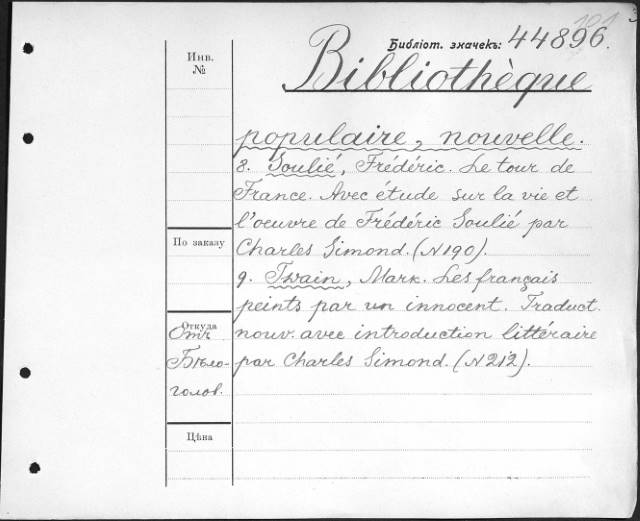 101
Библіот. значекъ: 44896.
Bibliothèque
Инв. №
populaire, nouvelle.
8. Soulié, Frédéric. Le tour de
France. Avec étude sur la vie et
l'oeuvre de Frédéric Soulié par
По заказу
Charles Simond. (N 190).
9. Twain, Mark. Les français
peints par un innocent. Traduct.
Откуда
Отъ Бѣло-голов.
nouv. avec introduction littéraire
par Charles Simond. (N 212).
Цѣна